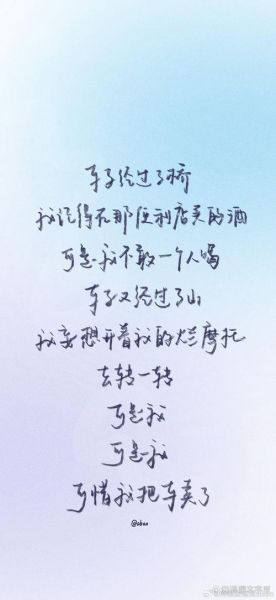 车子经过了桥
我记得在那便利店买的酒
可是我不敢一个人喝
车子又经过了山
我妄想开着我的烂摩托
去转一转
可是我
可是我
可惜我把车卖了